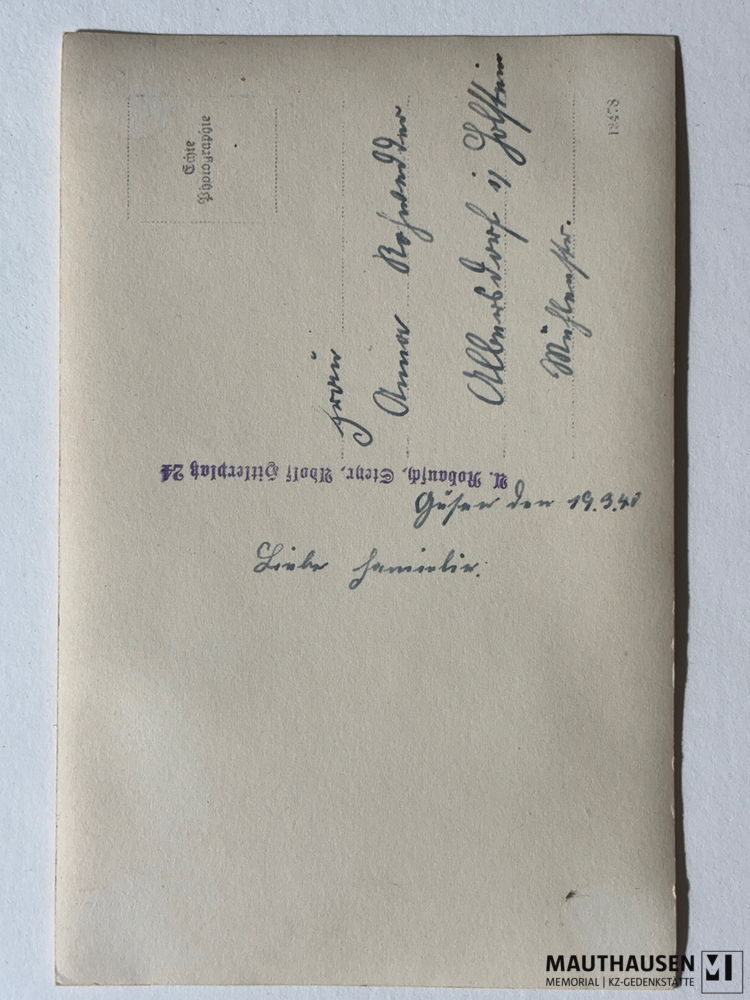 Echte
Photographie
Frau
Anna Rohwedder
Albersdorf i/ Holstein
Mühlenstr.
18478
A. Robausch, Steyr, Adolf Hitlerplatz 24
Gusen den 19.3.40
Liebe Familie.
MAUTHAUSEN
MEMORIAL | KZ-GEDENKSTÄTTE